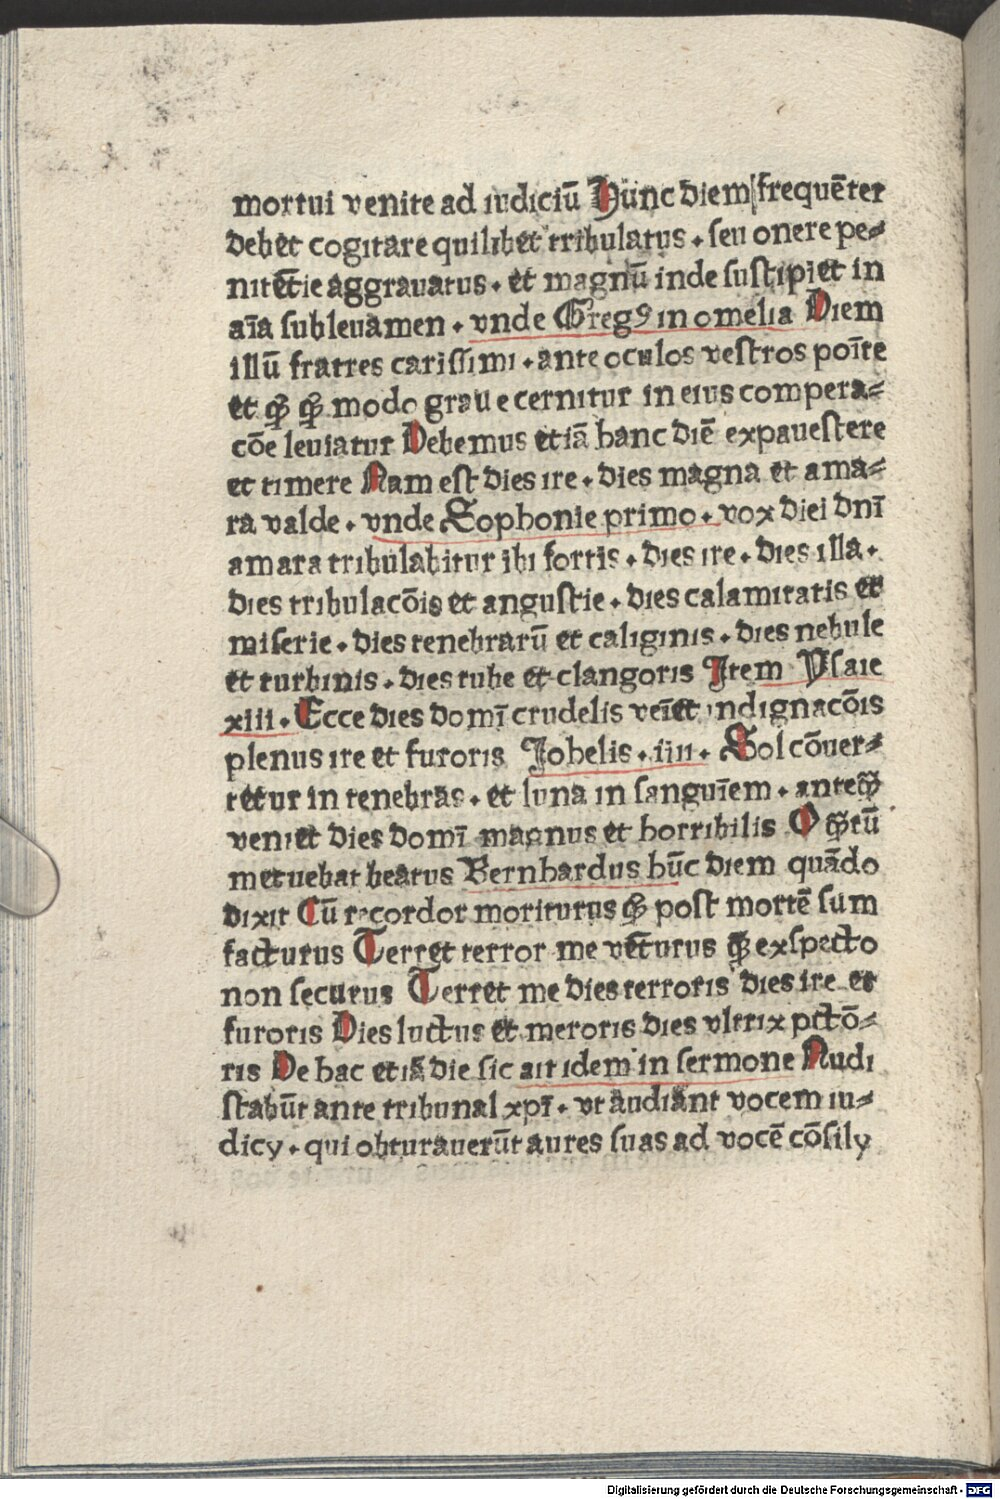 mortui venite ad iudiciū Hunc diem frequēter
debet cogitare quilibet tribulatus . seu onere pe⸗
nitētie aggrauatus . et magnū inde suscipiet in
aīa subleuamen . vnde Gregꝰ in omelia Diem
illū fratres carissimi . ante oculos vestros poīte
et qͥcqͥd modo graue cernitur in eius compera⸗
cōe leuiatur Debemus etiā hanc diē expauescere
et timere Nam est dies ire . dies magna et ama⸗
ra valde . vnde Sophonie primo . vox diei dnī
amara tribulabitur ibi fortis . dies ire . dies illa .
dies tribulacōis et angustie . dies calamitatis et
miserie . dies tenebrarū et caliginis . dies nebule
et turbinis . dies tube et clangoris Item Ysaie
xiii . Ecce dies domī crudelis veīet indignacōis
plenus ire et furoris Johelis . iiii . Sol cōuer⸗
tetur in tenebras . et luna in sanguīem . anteꝙ̄
veniet dies domī magnus et horribilis O ꝙ̄tū
metuebat beatus Bernhardus hūc diem quādo
dixit Cū recordor moriturus qͥd post mortē sum
facturus Terret terror me vēturus qͥē exspecto
non securus Terret me dies terroris dies ire et
furoris Dies luctus et meroris dies vltrix pctō⸗
ris De hac etiā die sic ait idem in sermone Nudi
stabūt ante tribunal xpī . vt audiant vocem iu⸗
dicy . qui obturauerūt aures suas ad vocē cōsily
Digitalisierung gefördert durch die Deutsche Forschungsgemeinschaft - DFG